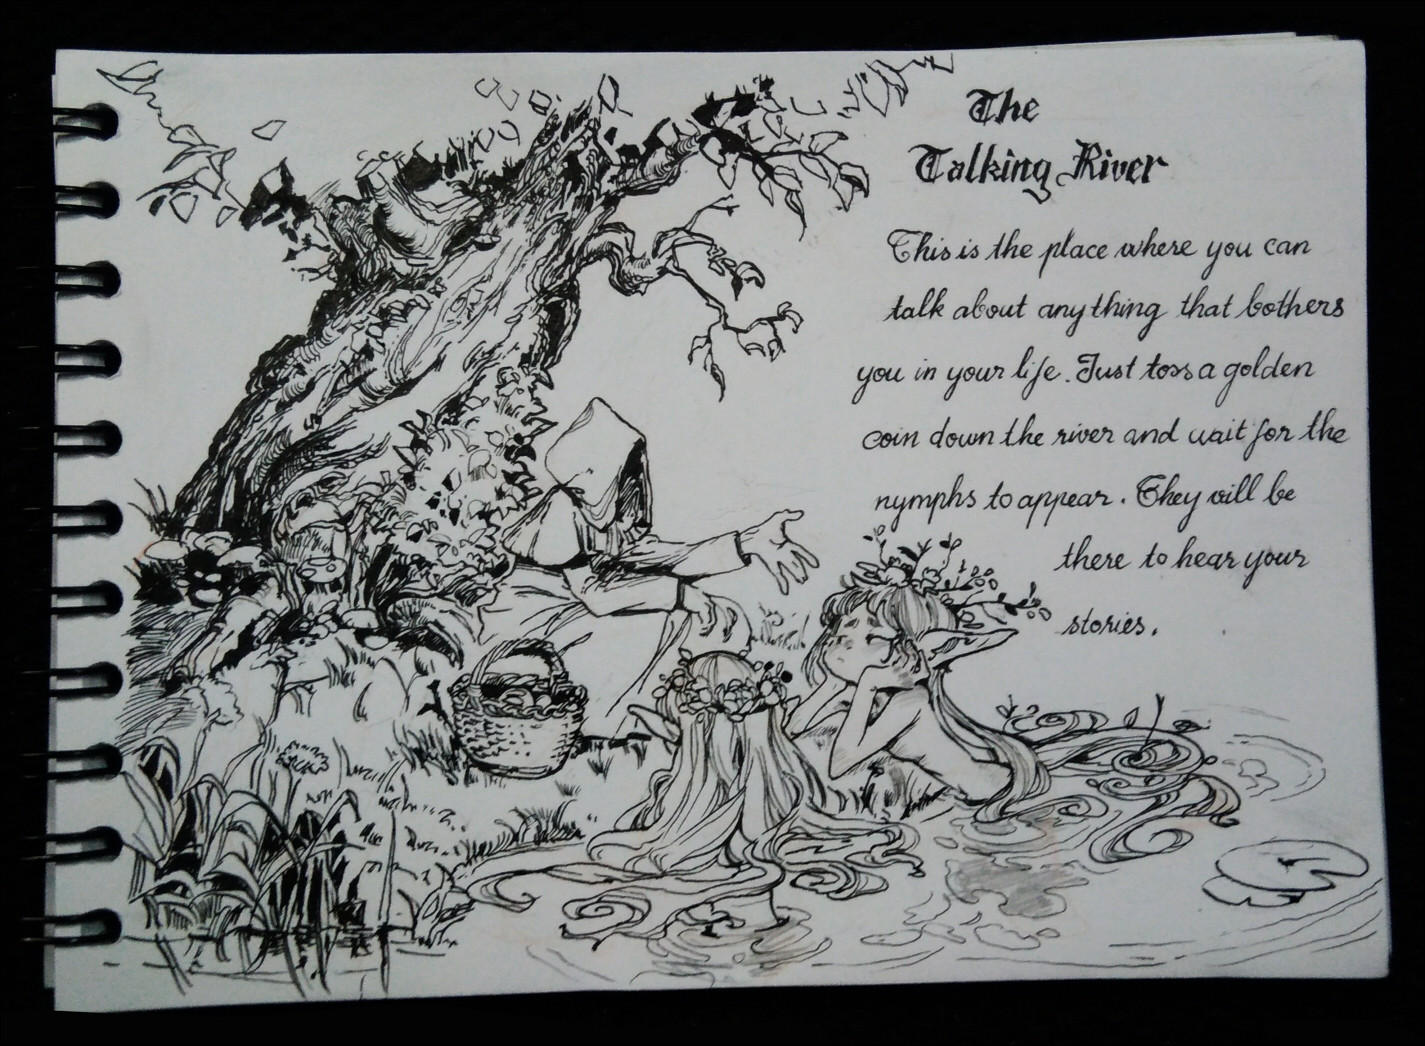 The
Talking River
This is the place where you can
talk about anything that bothers
you in your life. Just toss a golden
coin down the river and wait for the
nymphs to appear. They will be
there to hear your
stories.